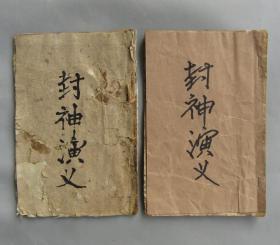 封神演义
封神演义